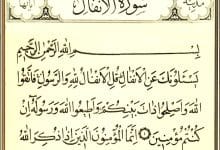 سورة الأنفال
بِسْمِ اللَّهِ الرَّحْمَٰنِ الرَّحِيمِ
يَسْـَٔلُونَكَ عَنِ الْأَنفَالِ قُلِ الْأَنفَالُ لِلَّهِ وَالرَّسُولِ فَاتَّقُوا
اللَّهَ وَأَصْلِحُوا ذَاتَ بَيْنِكُمْ وَأَطِيعُوا اللَّهَ وَرَسُولَهُ إِن
كُنتُم مُّؤْمِنِينَ ۝ إِنَّمَا الْمُؤْمِنُونَ الَّذِينَ إِذَا ذُكِرَ اللَّهُ